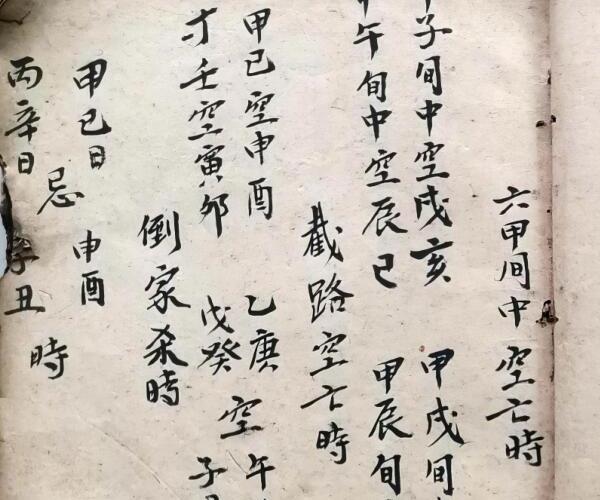 六甲间中空亡時
子旬中空戌亥 甲戌旬
午旬中空辰巳 甲辰旬
截路空亡時
甲己空申酉 乙庚空午
寸壬空寅夘 戊癸 子
倒家杀時
甲己日 申酉
忌 時
丙辛日 丑